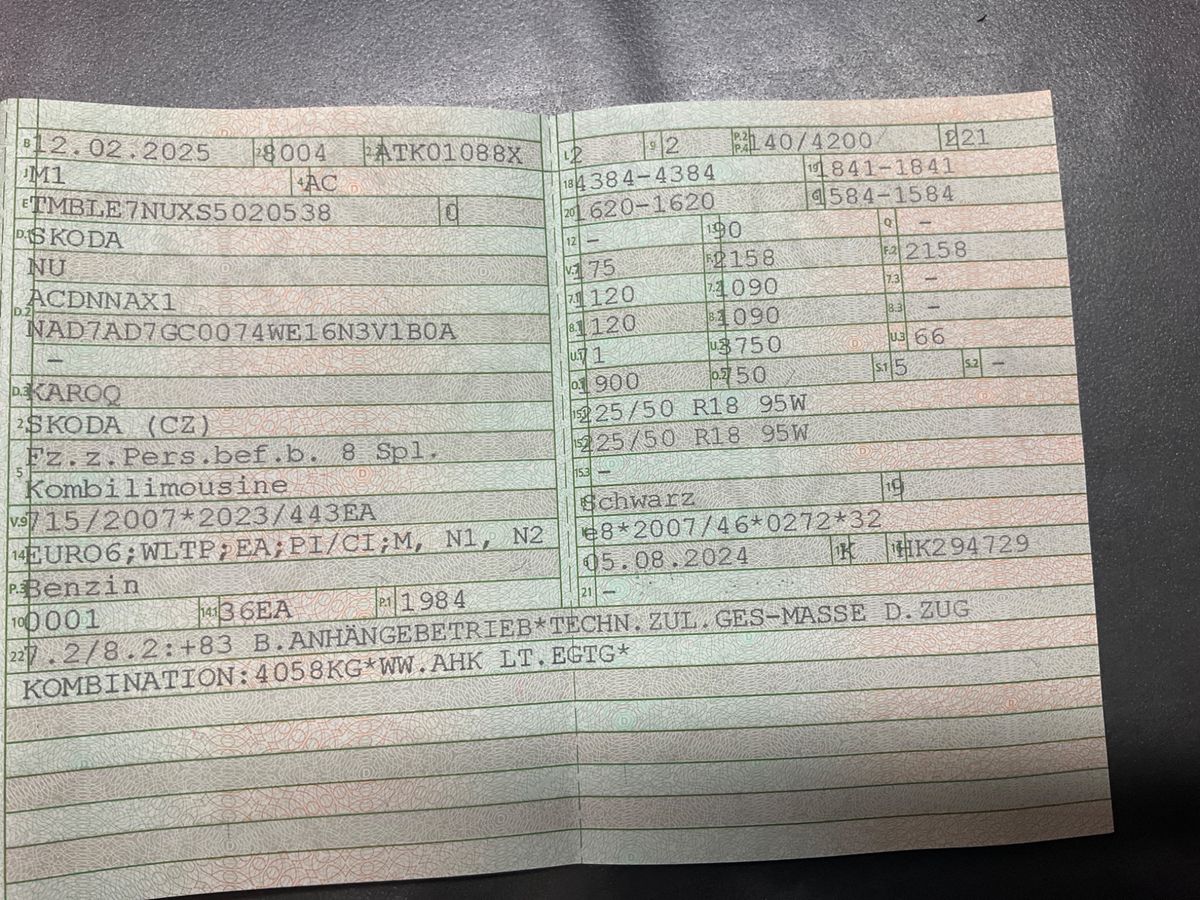 B 12.02.2025 2.1 8004 2.2 ATK01088X
J M1 4 AC
E TMBLE7NUXS5020538 0
D.1 SKODA
NU
D.2 ACDNNAX1
NAD7AD7GC0074WE16N3V1B0A
–
D.3 KAROQ
2 SKODA (CZ)
5 Fz.z.Pers.bef.b. 8 Spl.
Kombilimousine
V.9 715/2007*2023/443EA
14 EURO6;WLTP;EA;PI/CI;M, N1, N2
P.3 Benzin
10 0001 14.1 36EA P.1 1984
L 2 9 2 P.2 P.4 140/4200 221
18 4384-4384 19 1841-1841
20 1620-1620 G 1584-1584
12 – 13 90 Q –
V.7 175 F.1 2158 F.2 2158
7.1 1120 7.2 1090 7.3 –
8.1 1120 8.2 1090 8.3 –
U.1 71 U.2 3750 U.3 66
O.1 1900 O.2 750 S.1 5 S.2 –
15.1 225/50 R18 95W
15.2 225/50 R18 95W
15.3 –
R Schwarz 9
K e8*2007/46*0272*32
6 05.08.2024 17 K 16 HK294729
21 –
22 7.2/8.2:+83 B.ANHÄNGEBETRIEB*TECHN.ZUL.GES-MASSE D.ZUG
KOMBINATION:4058KG*WW.AHK LT.EGTG*